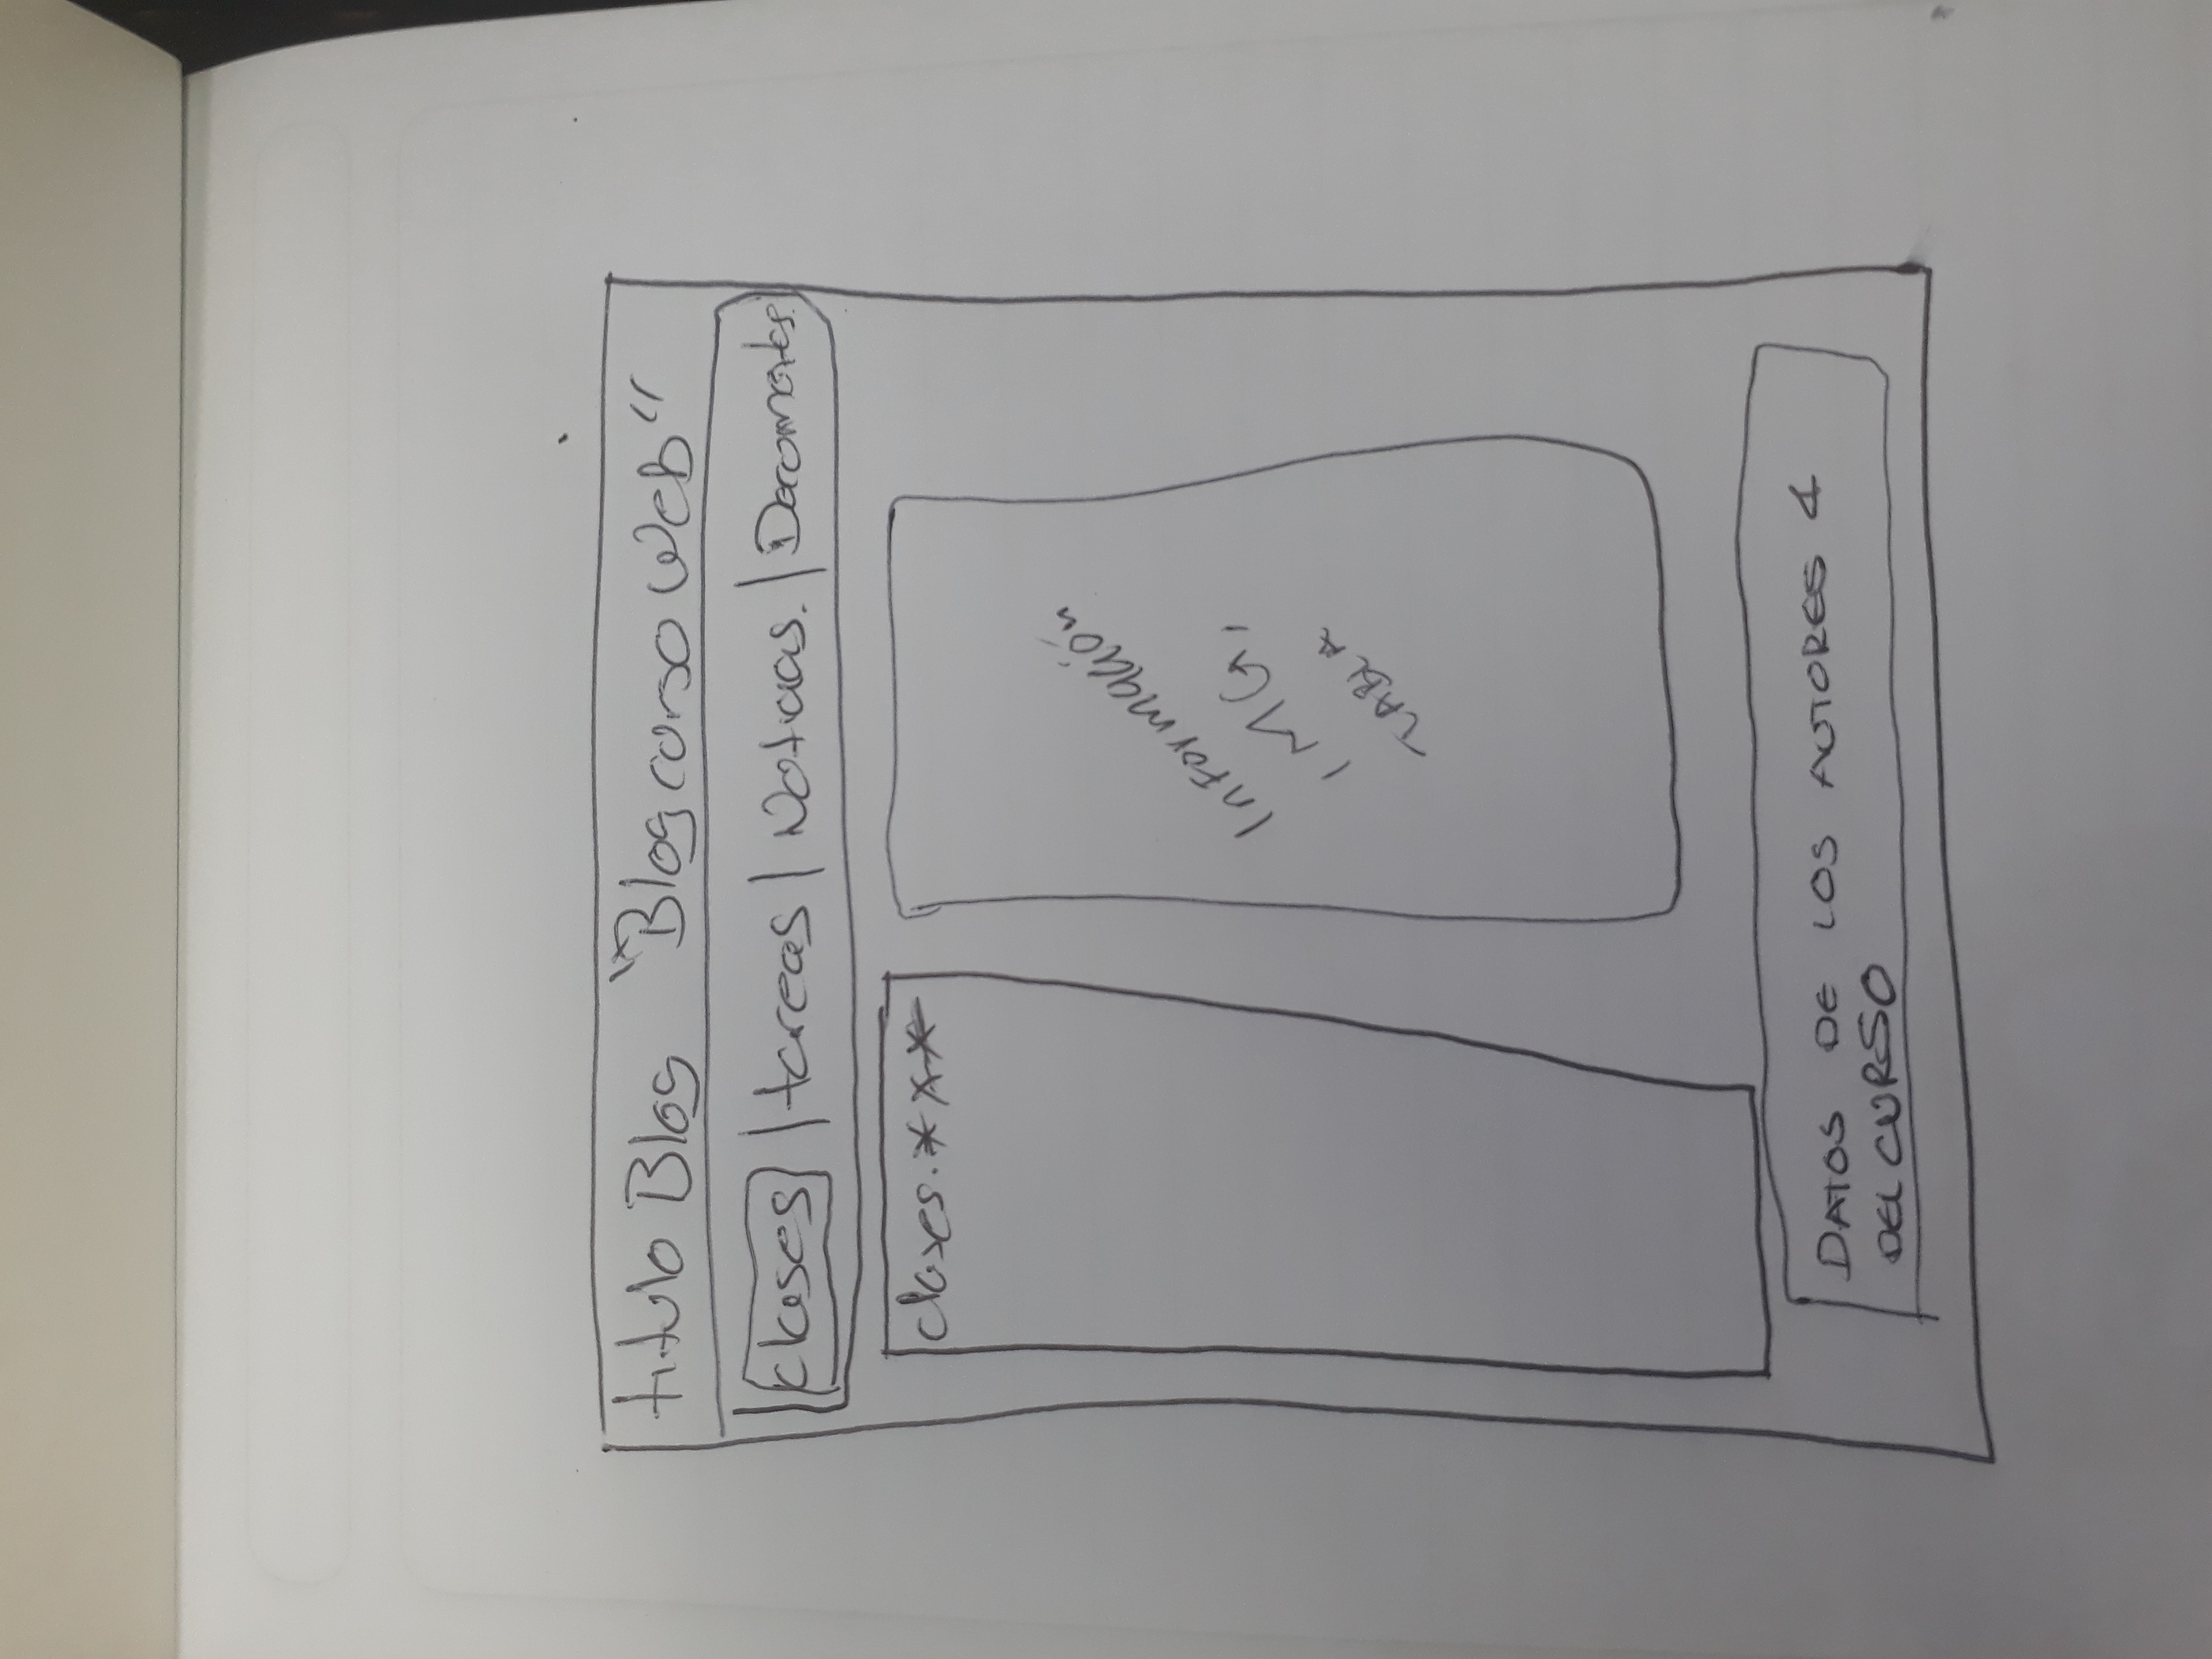 titulo Blog "Blog curso Web"
clases | tareas | Noticias. | Documentos
clases. * * *
Información
IMG,
TABLA
DATOS DE LOS AUTORES
DEL CURSO